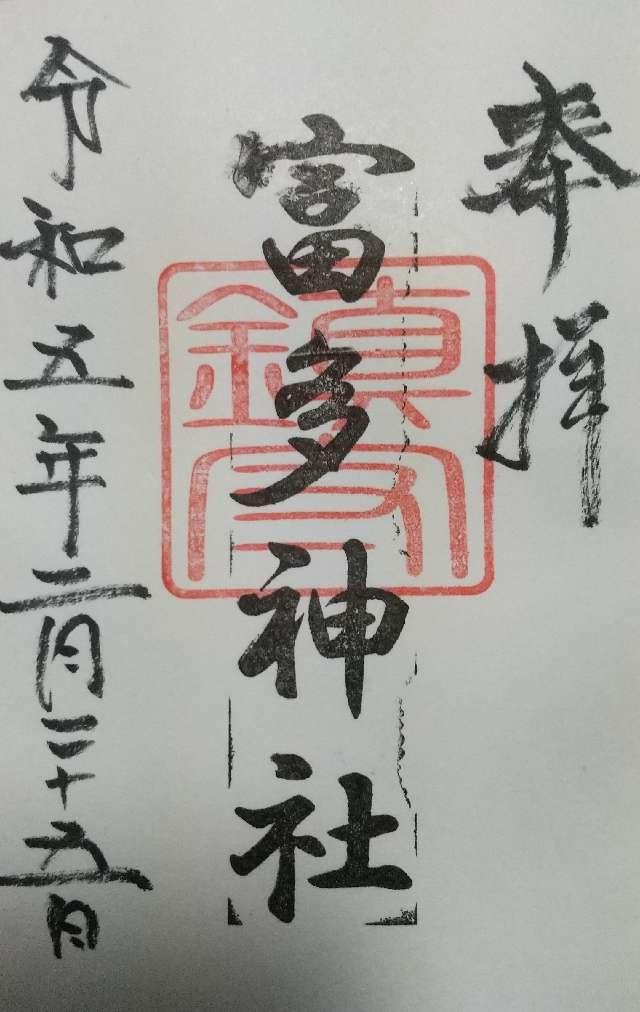 奉拝
富多神社
鎮
令和五年二月二十五日